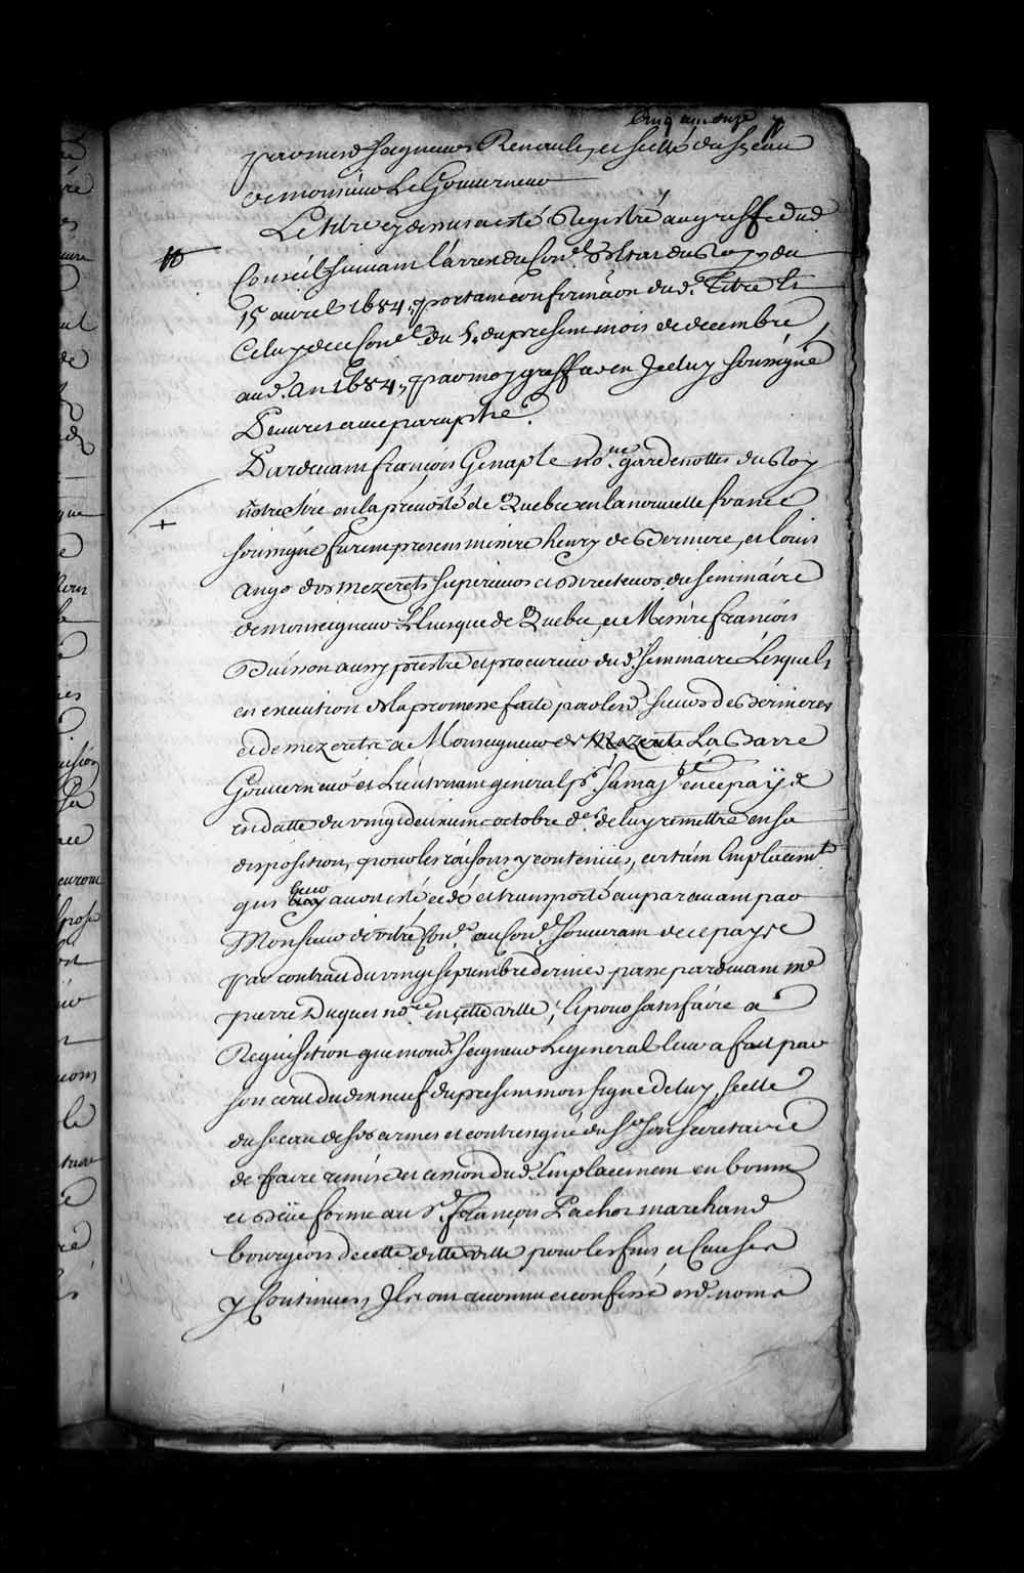 par mesd. Seigneurs Renault, et scellé du sceau
de monsieur Le Gouverneur
Le titre cy dessus a esté Registré au greffe dud
Conseil suivant l'arrest du Con.el d'Estat du Roy, du
15 avril 1684, portant confirmaon dud. Titre Et
Celuy de ce Con.el du 5. du present mois de decembre
aud. an 1684, par moy greffier en Iceluy soussigné
Peuvret avec paraphe.
Pardevant françois Genaple no.re gardenottes du Roy
notre Sire en la prévosté de Quebec en la nouvelle france
soussigné furent presens messire henry de Bernière, et louis
ango des mezerets superieurs et Directeurs du seminaire
de monseigneur L'Evesque de Quebec, et Messire francois
Buisson aussy prestre et procureur dud. seminaire Lesquels
en execution de la promesse faite par lesd. sieurs de Bernieres
et de mezerets a Monseigneur de Mezerets La Barre
Gouverneur et Lieutenant general p.r sa maj.té en ce païs
en datte du vingt deuxieme octobre d.er de luy remettre en sa
disposition, pour les raisons y contenües, certain Emplacem.t
qui leur avoit esté cedé et transporté auparavant par
Monsieur de vitré Con.er au Con.el souverain de ce pays
par contract du vingt septembre dernier passé pardevant me
pierre Duquet no.re en cette ville; Et pour satisfaire a
Requisition que mond. seigneur Le general leur a fait par
son ecrit du dix neuf du present mois signé de luy, scellé
du sceau de ses armes et contresigné du S.r son secretaire
de faire remise et cession dud. Emplacement en bonne
et Deüe forme au S.r françois Pachot marchand
bourgeois de cette ditte ville pour les fins et Causes
y Contenues, Ils ont reconnu et confessé esd. noms